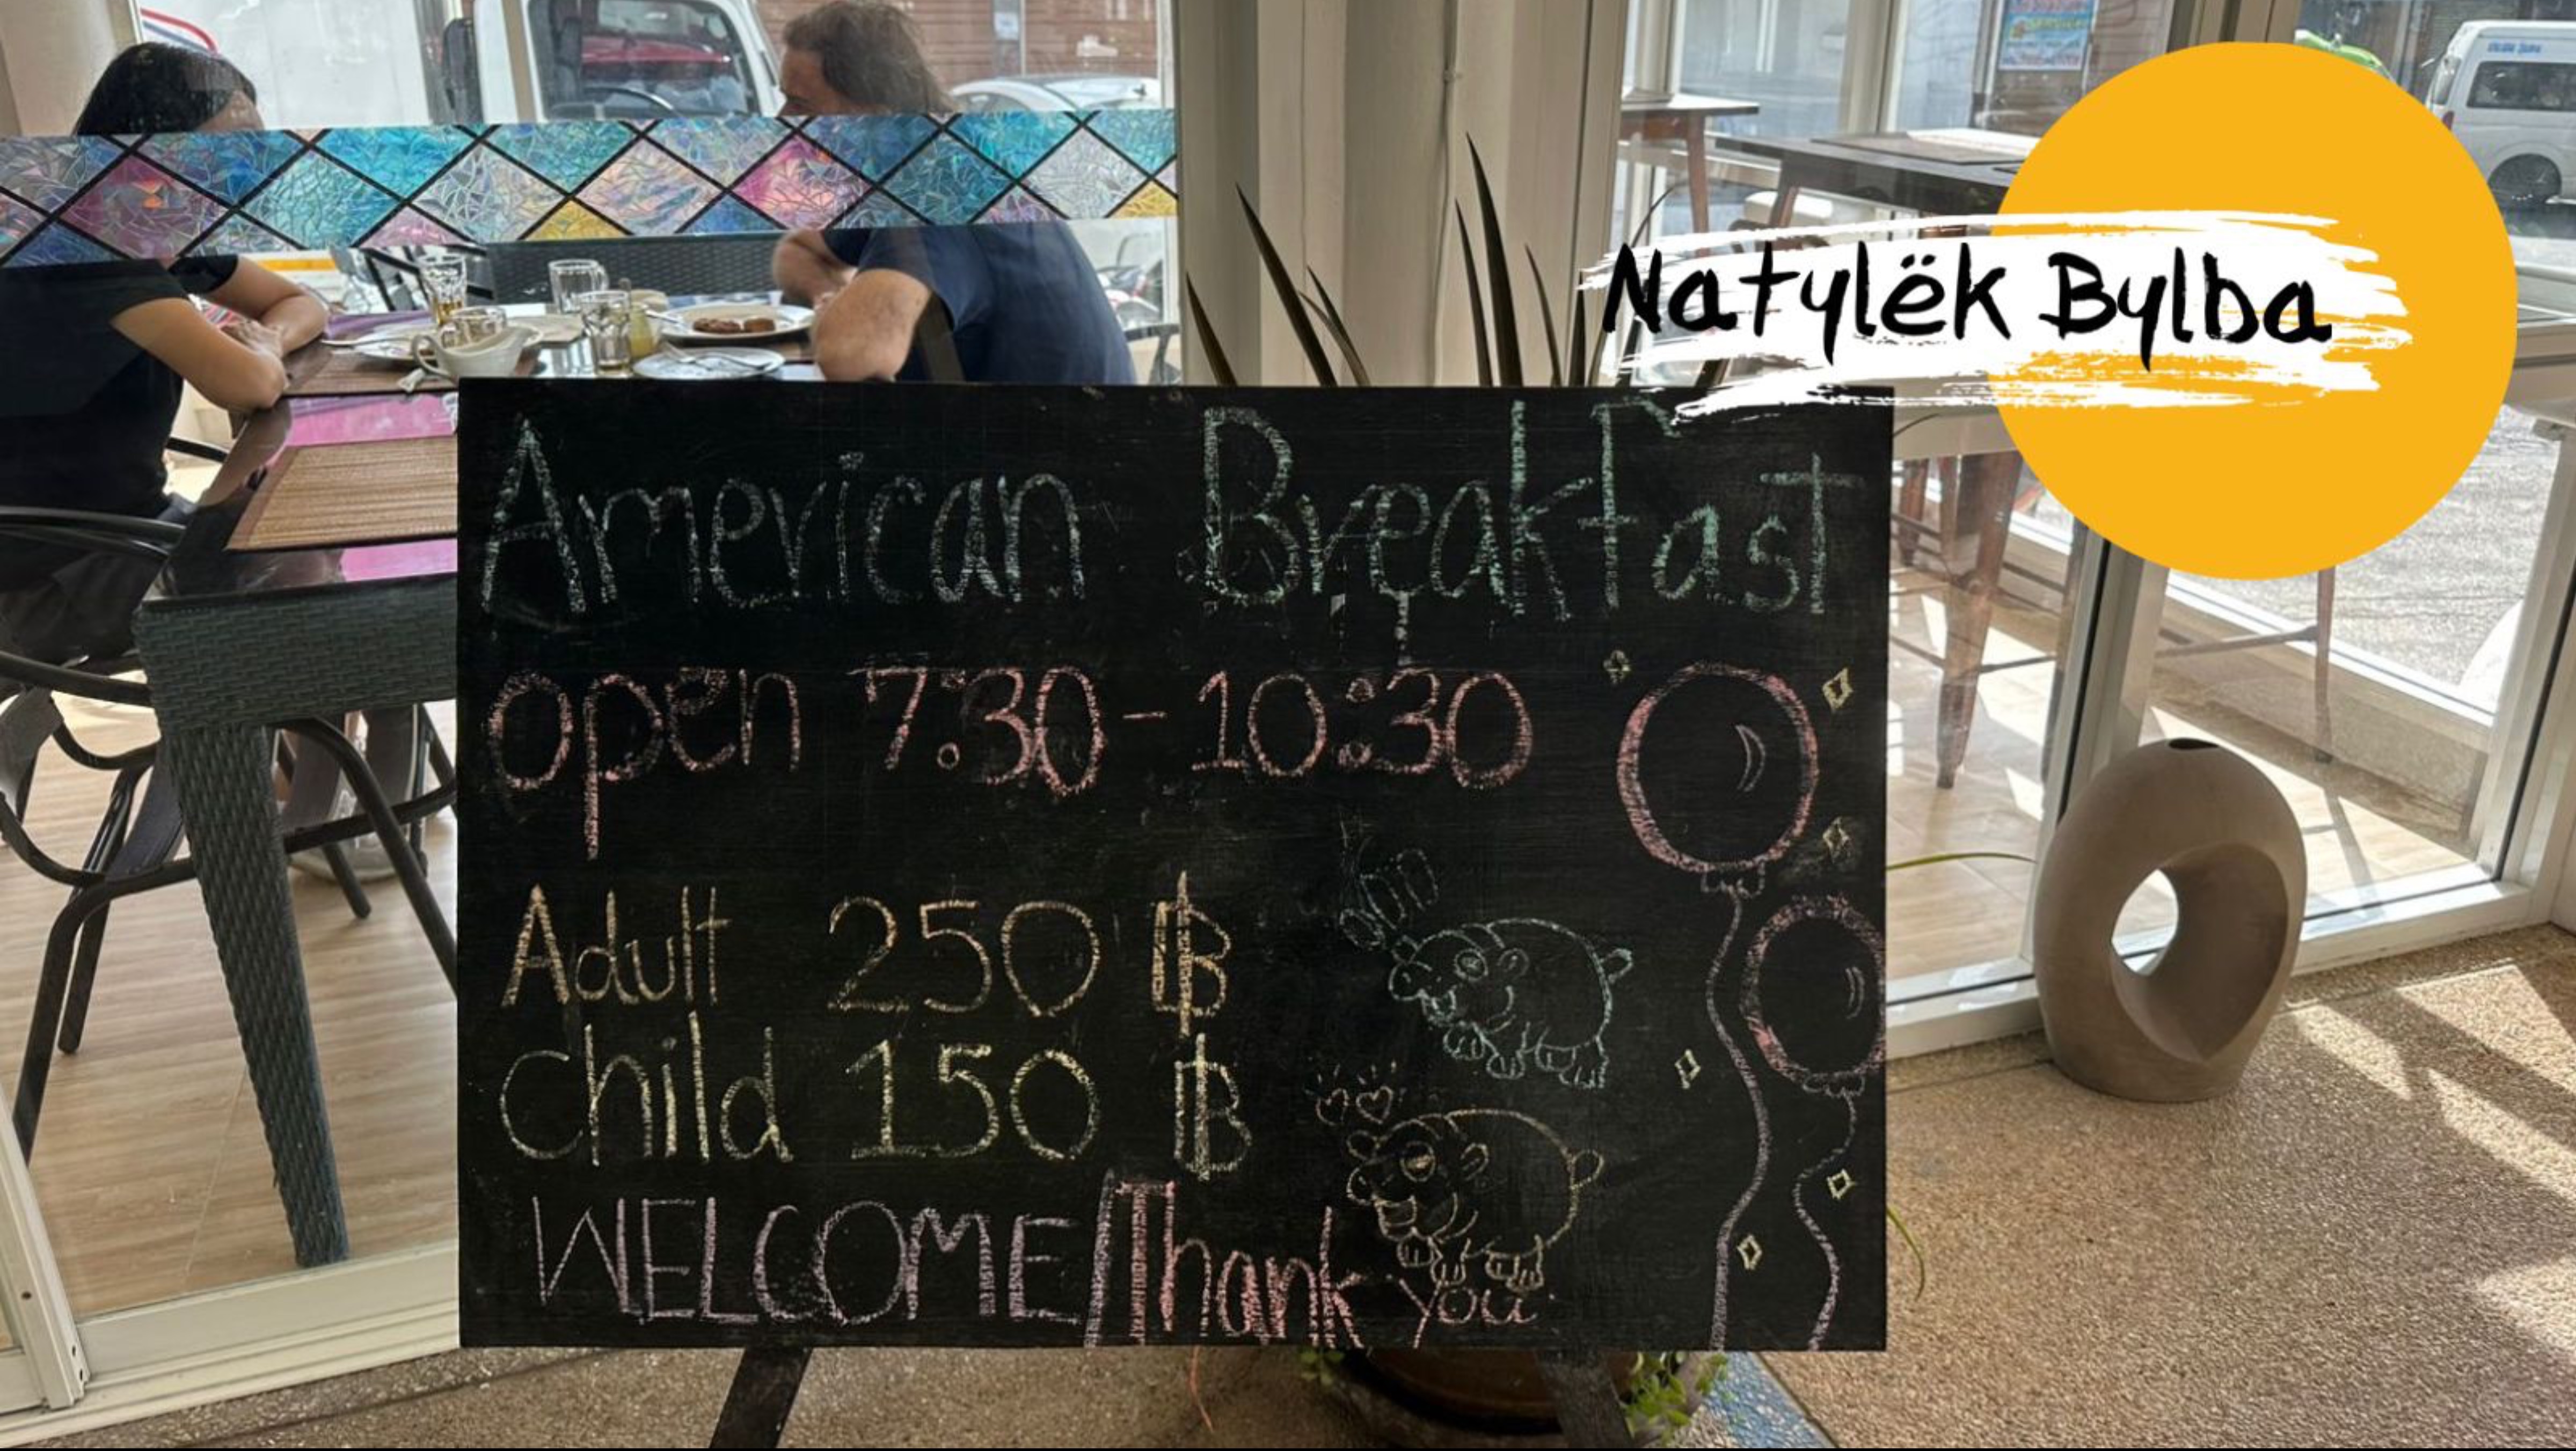 Natylëk Bylba
American Breakfast
open 7:30-10:30
Adult 250 ฿
child 150 ฿
WELCOME/Thank you